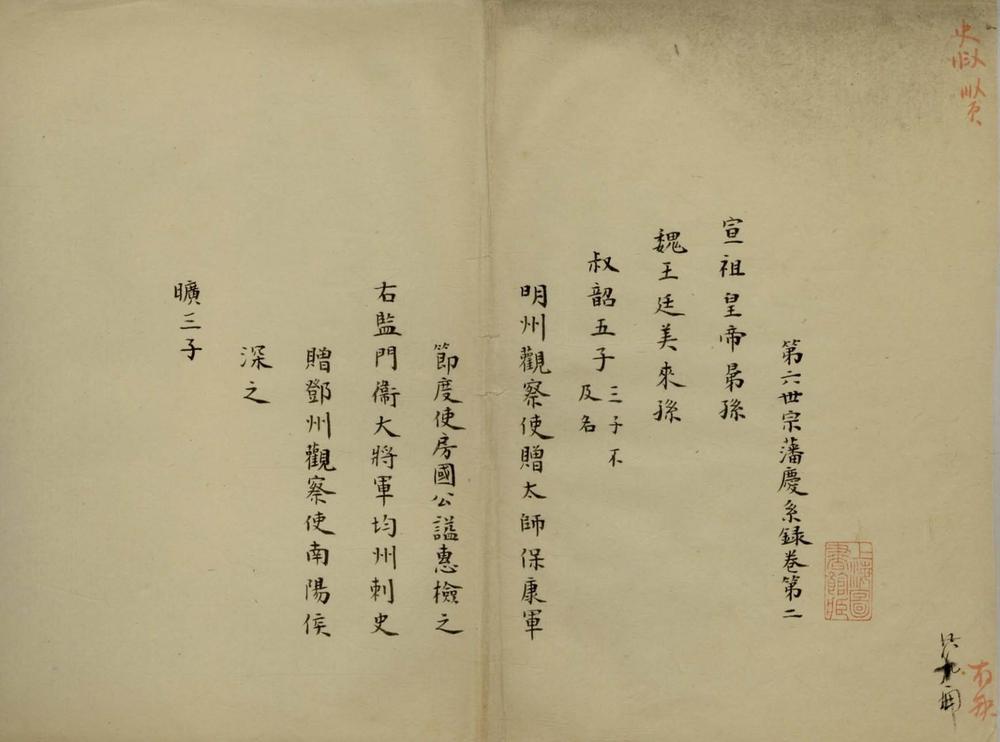 第六世宗藩慶系録巻第二
宣祖皇帝晜孫
魏王廷美來孫
叔韶五子 三子不
及名
明州觀察使贈太師保康軍
節度使房國公謚惠檢之
右監門衞大將軍均州刺史
贈鄧州觀察使南陽侯
深之
曠三子
上海圖
書館藏